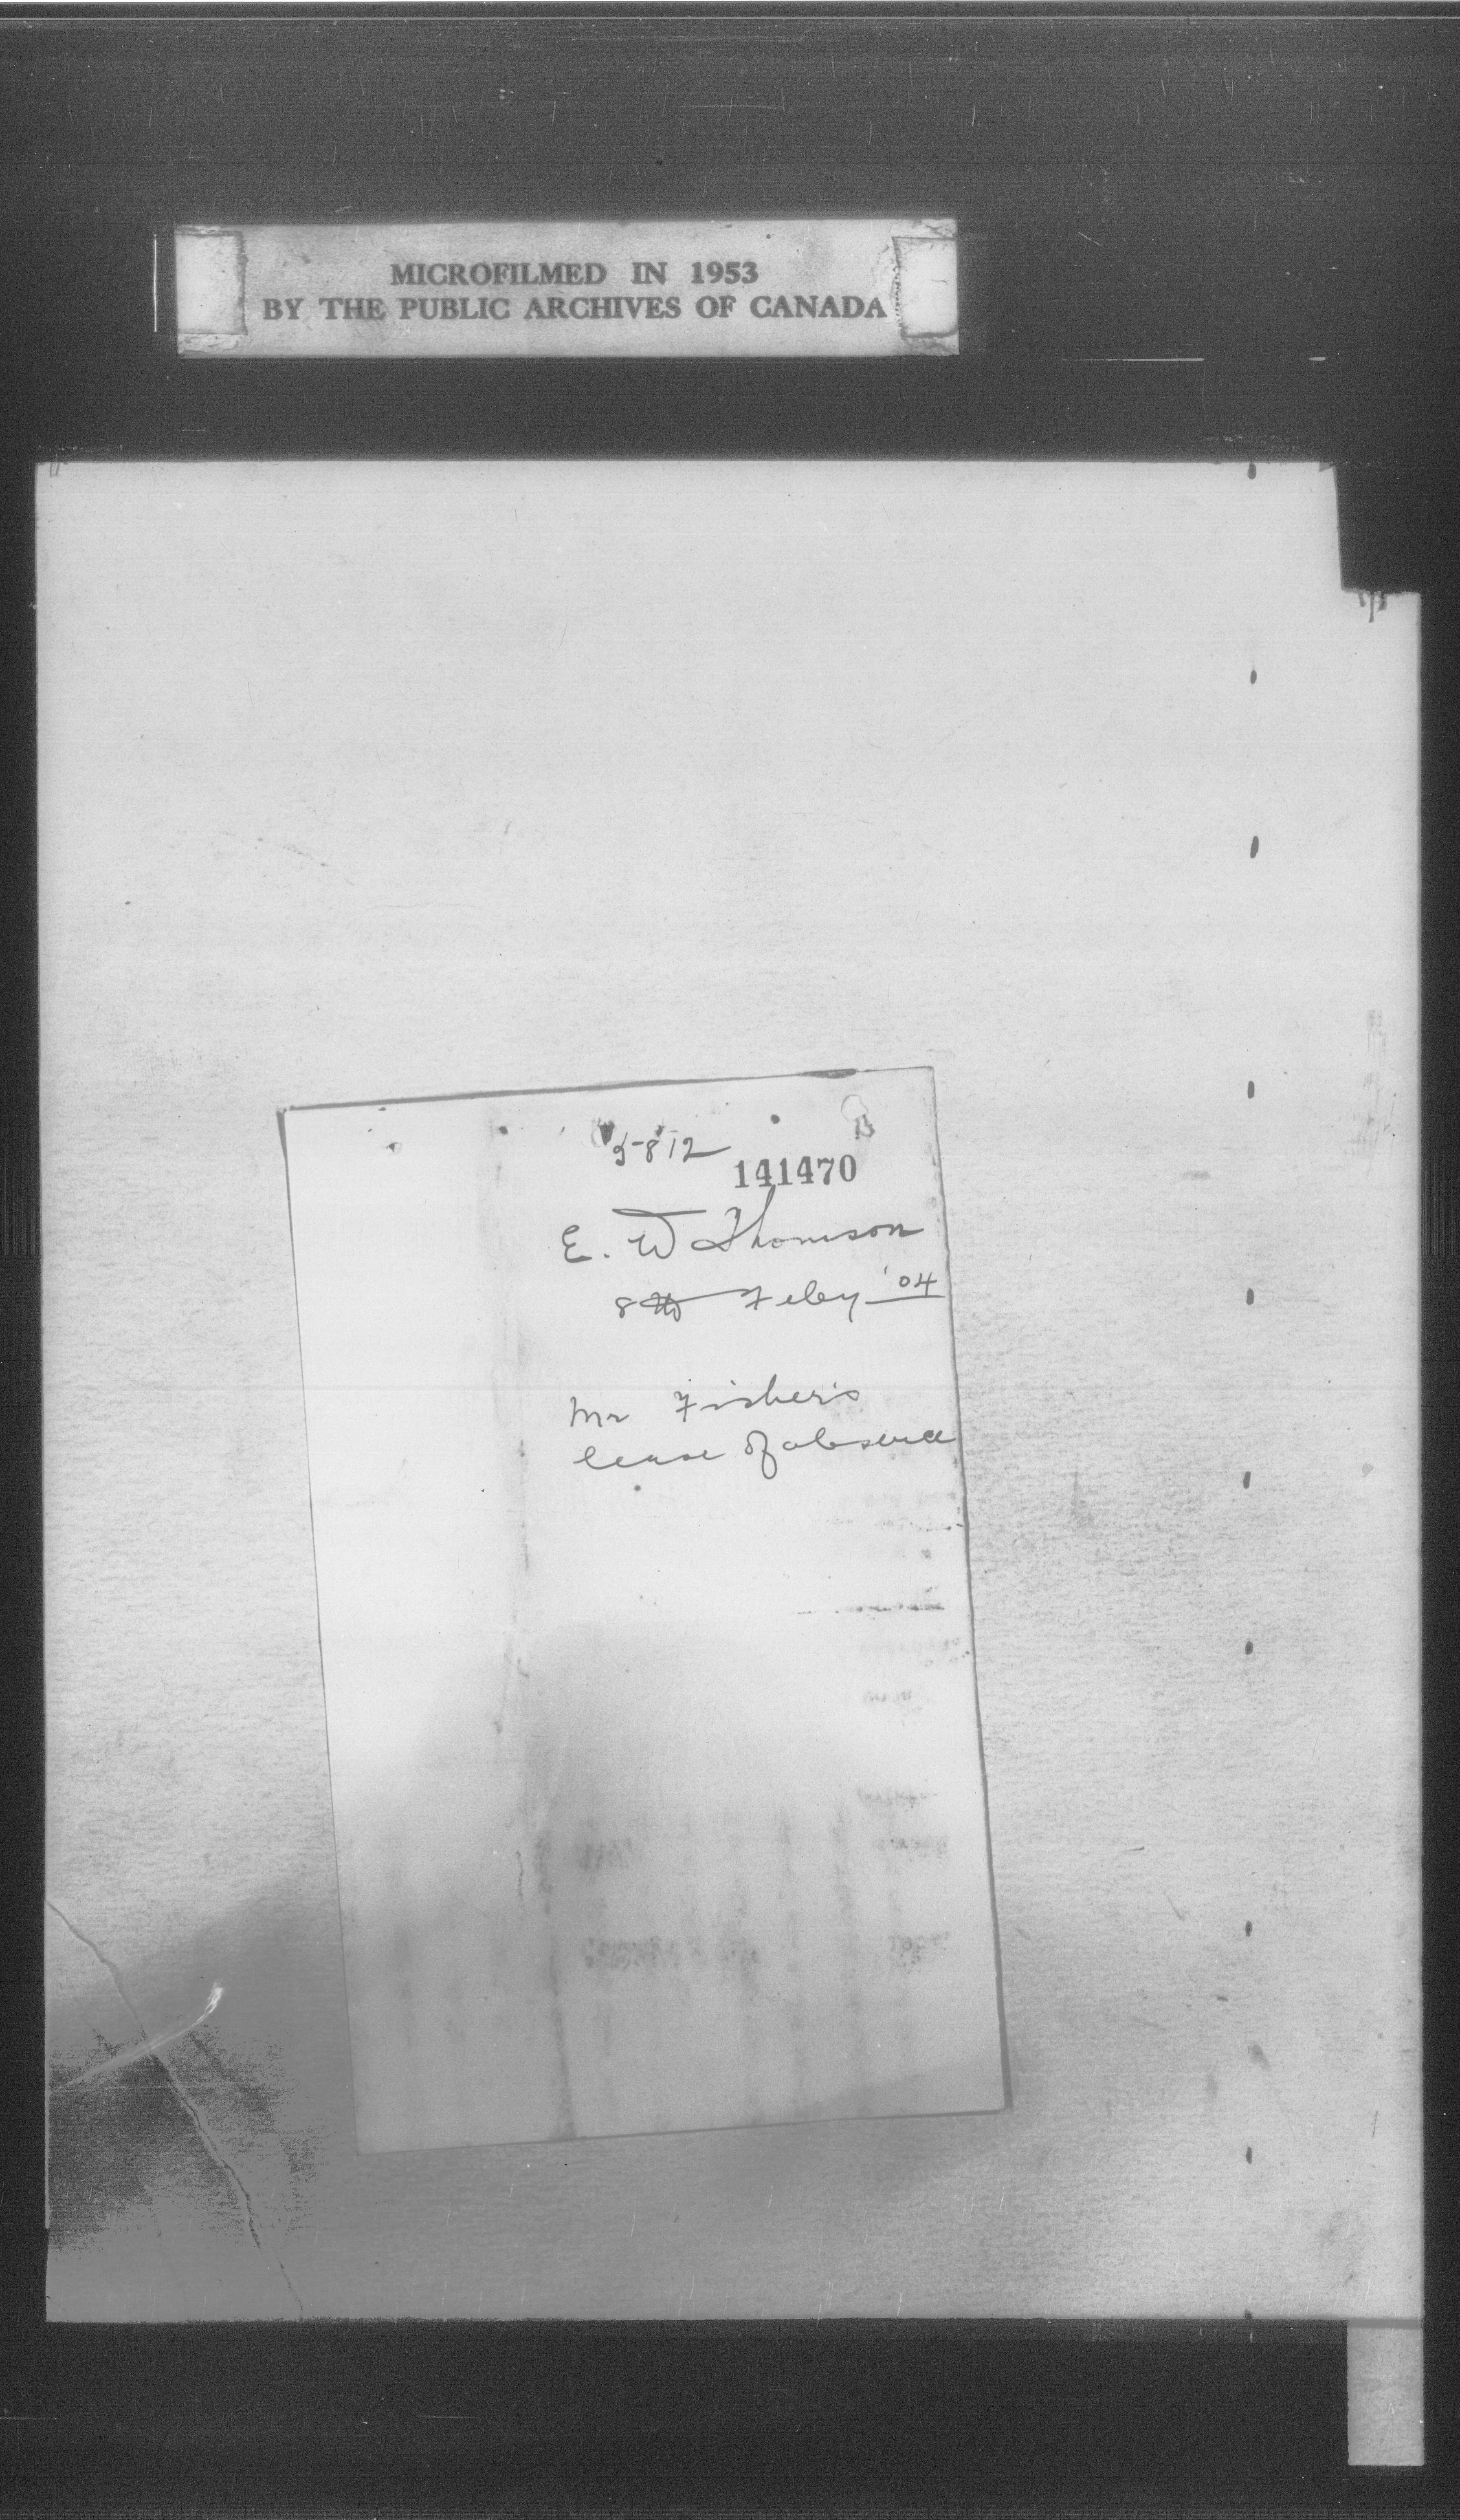 MICROFILMED IN 1953
BY THE PUBLIC ARCHIVES OF CANADA
5812
141470
E. W Thomson
8th Feby '04
Mr Fisher's
leave of absence